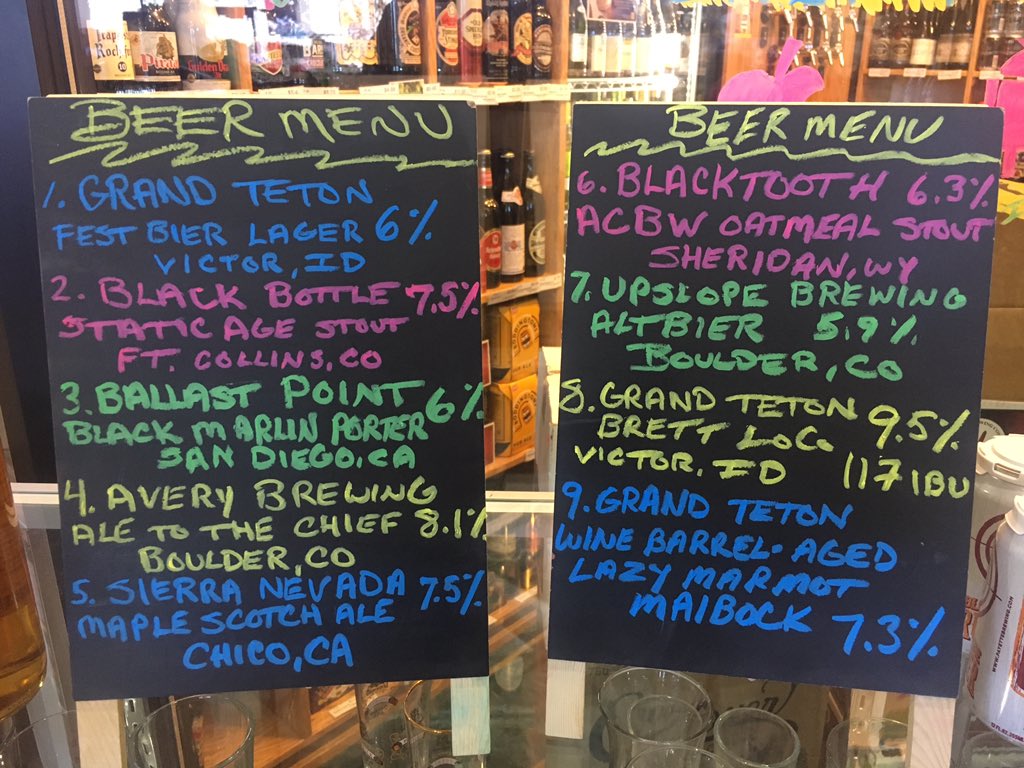 BEER MENU
1. GRAND TETON
FEST BIER LAGER 6%
VICTOR, ID
2. BLACK BOTTLE 7.5%
STATIC AGE STOUT
FT. COLLINS, CO
3. BALLAST POINT 6%
BLACK MARLIN PORTER
SAN DIEGO, CA
4. AVERY BREWING
ALE TO THE CHIEF 8.1%
BOULDER, CO
5. SIERRA NEVADA 7.5%
MAPLE SCOTCH ALE
CHICO, CA
BEER MENU
6. BLACKTOOTH 6.3%
ACBW OATMEAL STOUT
SHERIDAN, WY
7. UPSLOPE BREWING
ALTBIER 5.9%
BOULDER, CO
8. GRAND TETON 9.5%
BRETT LOCO
VICTOR, ID 117 IBU
9. GRAND TETON
WINE BARREL-AGED
LAZY MARMOT
MAIBOCK 7.3%